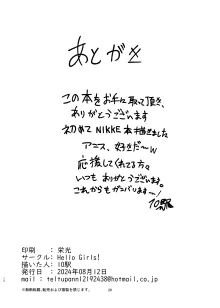 あとがき
この本をお手に取って頂き、
ありがとうございます
初めてNIKKE本描きました
アニス、好きだ〜w
応援してくれてる方。
いつもありがとうございます。
これからもガンバリまーす!
10駅
印刷 : 栄光
サークル: Hello Girls!
描いた人: 10駅
発行日 : 2024年08月12日
mail : teltupann12192438@hotmail.co.jp
※無断転載、転売および複製を禁じます。